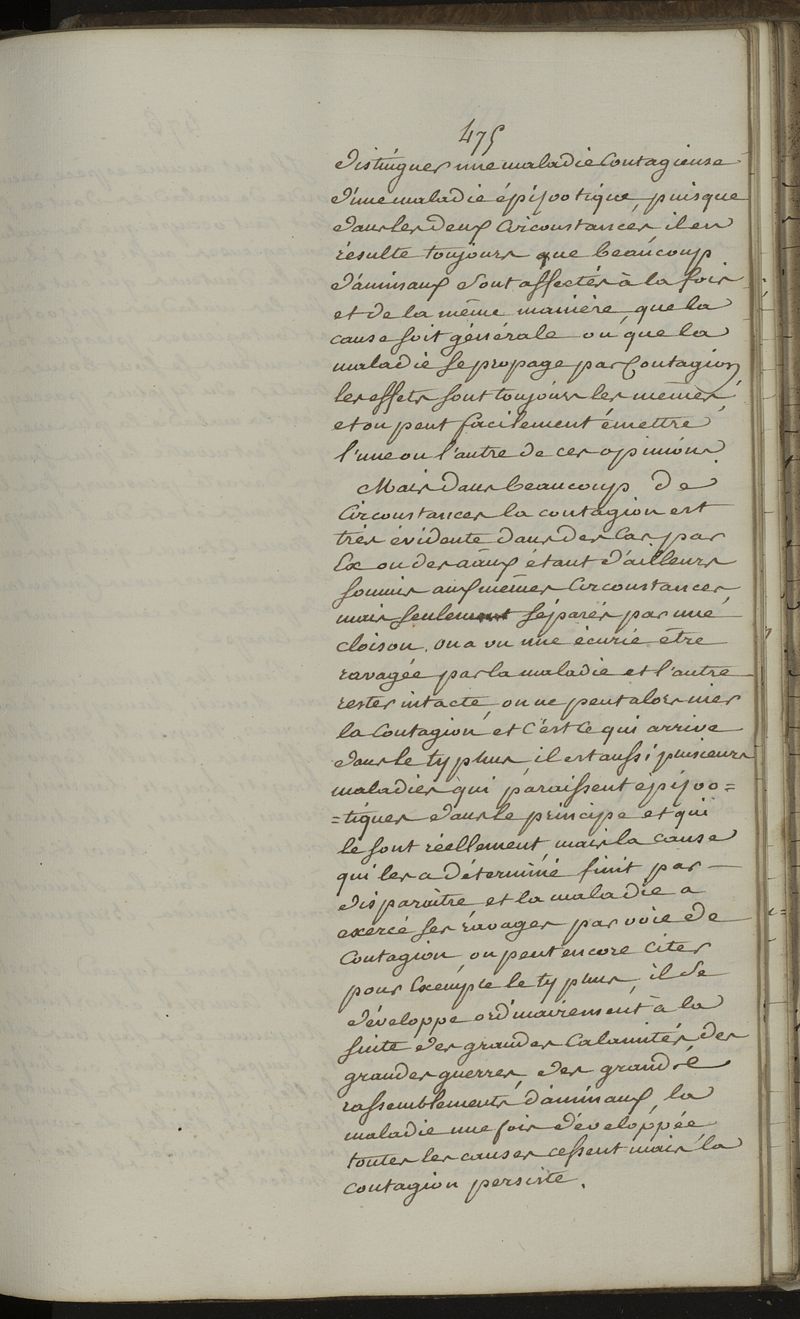 475
distinguer une maladie Contagieuse
d'une maladie épizootique, puisque
dans les deux Circonstances, il en
résulte toujours que beaucoup
d'animaux sont affectés à la fois
et de la même manière que la
cause soit générale ou que la
maladie se propage par Contagion
les effets sont toujours les mêmes,
et on peut facilement émettre
l'une ou l'autre de ces opinions.
Mais dans beaucoup de
Circonstances la contagion est
très évidente dans des Cas par
Ex ou des aāux étant d'ailleurs
soumis aux mêmes Circonstances
mais seulement séparés par une
cloison, on a vu une écurie être
ravagée par la maladie et l'autre
rester intacte, on ne peut alors nier
la Contagion, et C'est Ce qui arrive
dans le typhus, il est aussi plusieurs
maladies qui paraissent epizoo=
=tiques dans le principe et qui
le sont réellement, mais la cause
qui les a déterminé finit par —
disparaitre et la maladie a
exercé ses ravages par voie de
Contagion, on peut encore citer
pour Exemple le typhus, il se
développe ordinairement à la
suite des grandes Calamités des
grandes guerres, des grands
rassemblements d'animaux, la
maladie une fois développée,
toutes les causes cessent mais la
contagion persiste.